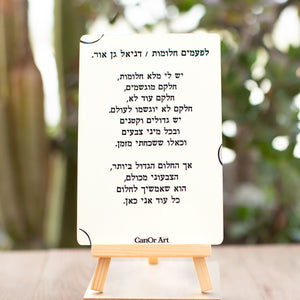 לפעמים חלומות / דניאל גן אור.
יש לי מלא חלומות,
חלקם מוגשמים,
חלקם עוד לא,
חלקם לא יוגשמו לעולם.
יש גדולים וקטנים
ובכל מיני צבעים
וכאלו ששכחתי מזמן.
אך החלום הגדול ביותר,
הצבעוני מכולם,
הוא שאמשיך לחלום
כל עוד אני כאן.
GanOr Art